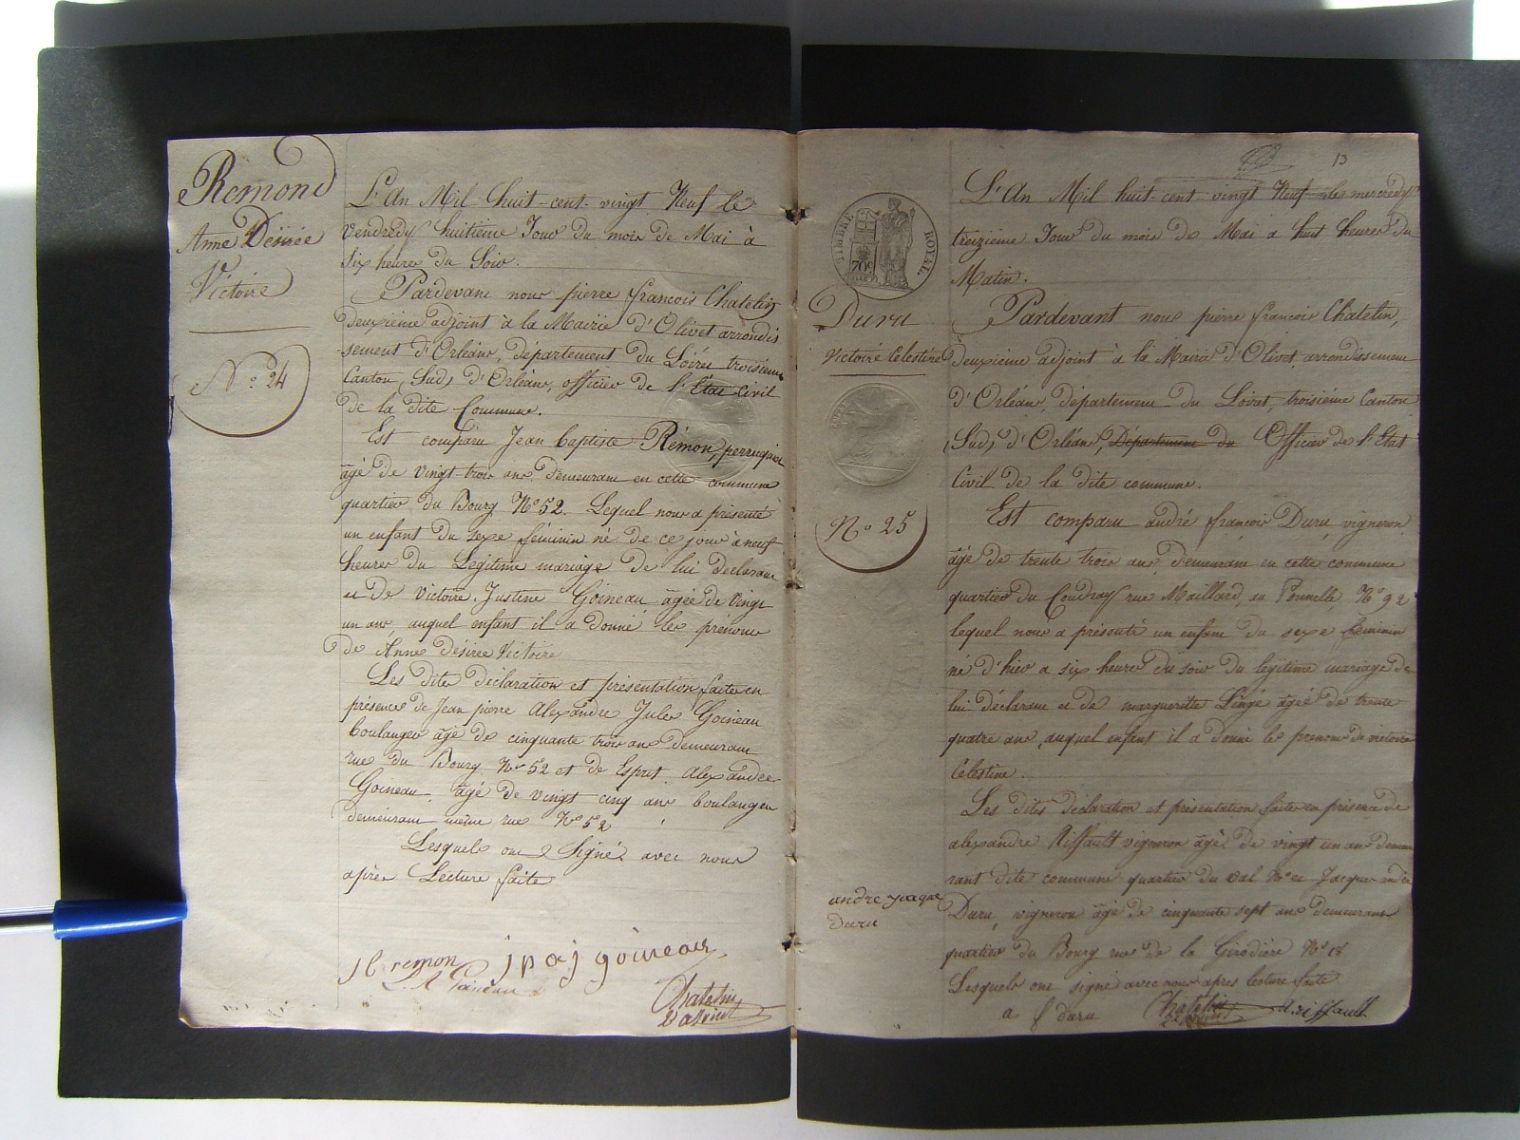 Remond
Anne Désirée
Victoire
N.º 24
L'An Mil huit-cent-vingt Neuf le
vendredy huitième Jour du mois de Mai à
six heures du Soir.
Pardevant nous pierre francois Chatelin
deuxième adjoint à la Mairie d'Olivet arrondis
sement d'Orléans, département du Loiret troisième
Canton (Sud) d'Orléans officier de l'État Civil
de la dite Commune.
Est comparu Jean baptiste Rémon, perruquier
âgé de vingt-trois ans demeurant en cette commune
quartier du Bourg Nº 52. Lequel nous a présenté
un enfant du sexe féminin né de ce jour à neuf
heures du Légitime mariage de lui déclarant
et de Victoire Justine Goineau âgée de Vingt
un ans, auquel enfant il a donné les prénoms
de Anne désirée Victoire
Les dites déclaration et présentation faites en
présence de Jean pierre Alexandre Jules Goineau
boulanger âgé de cinquante trois ans demeurant
rue du Bourg Nº 52 et de Esprit Alexandre
Goineau âgé de vingt cinq ans boulanger
demeurant même rue Nº 52
Lesquels ont Signé avec nous
après Lecture faite
j b remon j p a j goineau
Chatelin
2 adjoint
13
TIMBRE ROYAL
70c
Duru
Victoire Celestine
Nº 25
L'An Mil huit-cent-vingt Neuf le mercredy
treizième Jour du mois de Mai a huit heures du
Matin.
Pardevant nous pierre francois Chatelin,
deuxième adjoint à la Mairie d'Olivet, arrondissement
d'Orléans, département du Loiret, troisième Canton
(Sud) d'Orléans, Département du Officier de l'État
Civil de la dite commune.
Est comparu andré françois Duru, vigneron
âgé de trente trois ans, demeurant en cette commune
quartier du Coudray rue Maillard, au Nº 92
lequel nous a présenté un enfant du sexe féminin
né d'hier a six heures du soir du légitime mariage de
lui déclarant et de marguerite Lingé âgée de trente
quatre ans, auquel enfant il a donné les prenoms de victoire
Celestine.
Les dites déclaration et présentation faites en présence de
alexandre Riffault vigneron âgé de vingt un ans demeu
rant dite commune quartier du val Nº et Jacque andré
Duru, vigneron âgé de cinquante sept ans demeurant
quartier du Bourg rue de la Girodière Nº 18
Lesquels ont signé avec nous apres lecture faite
andre jacque
duru
a f duru Chatelin a riffault
2 adjoint